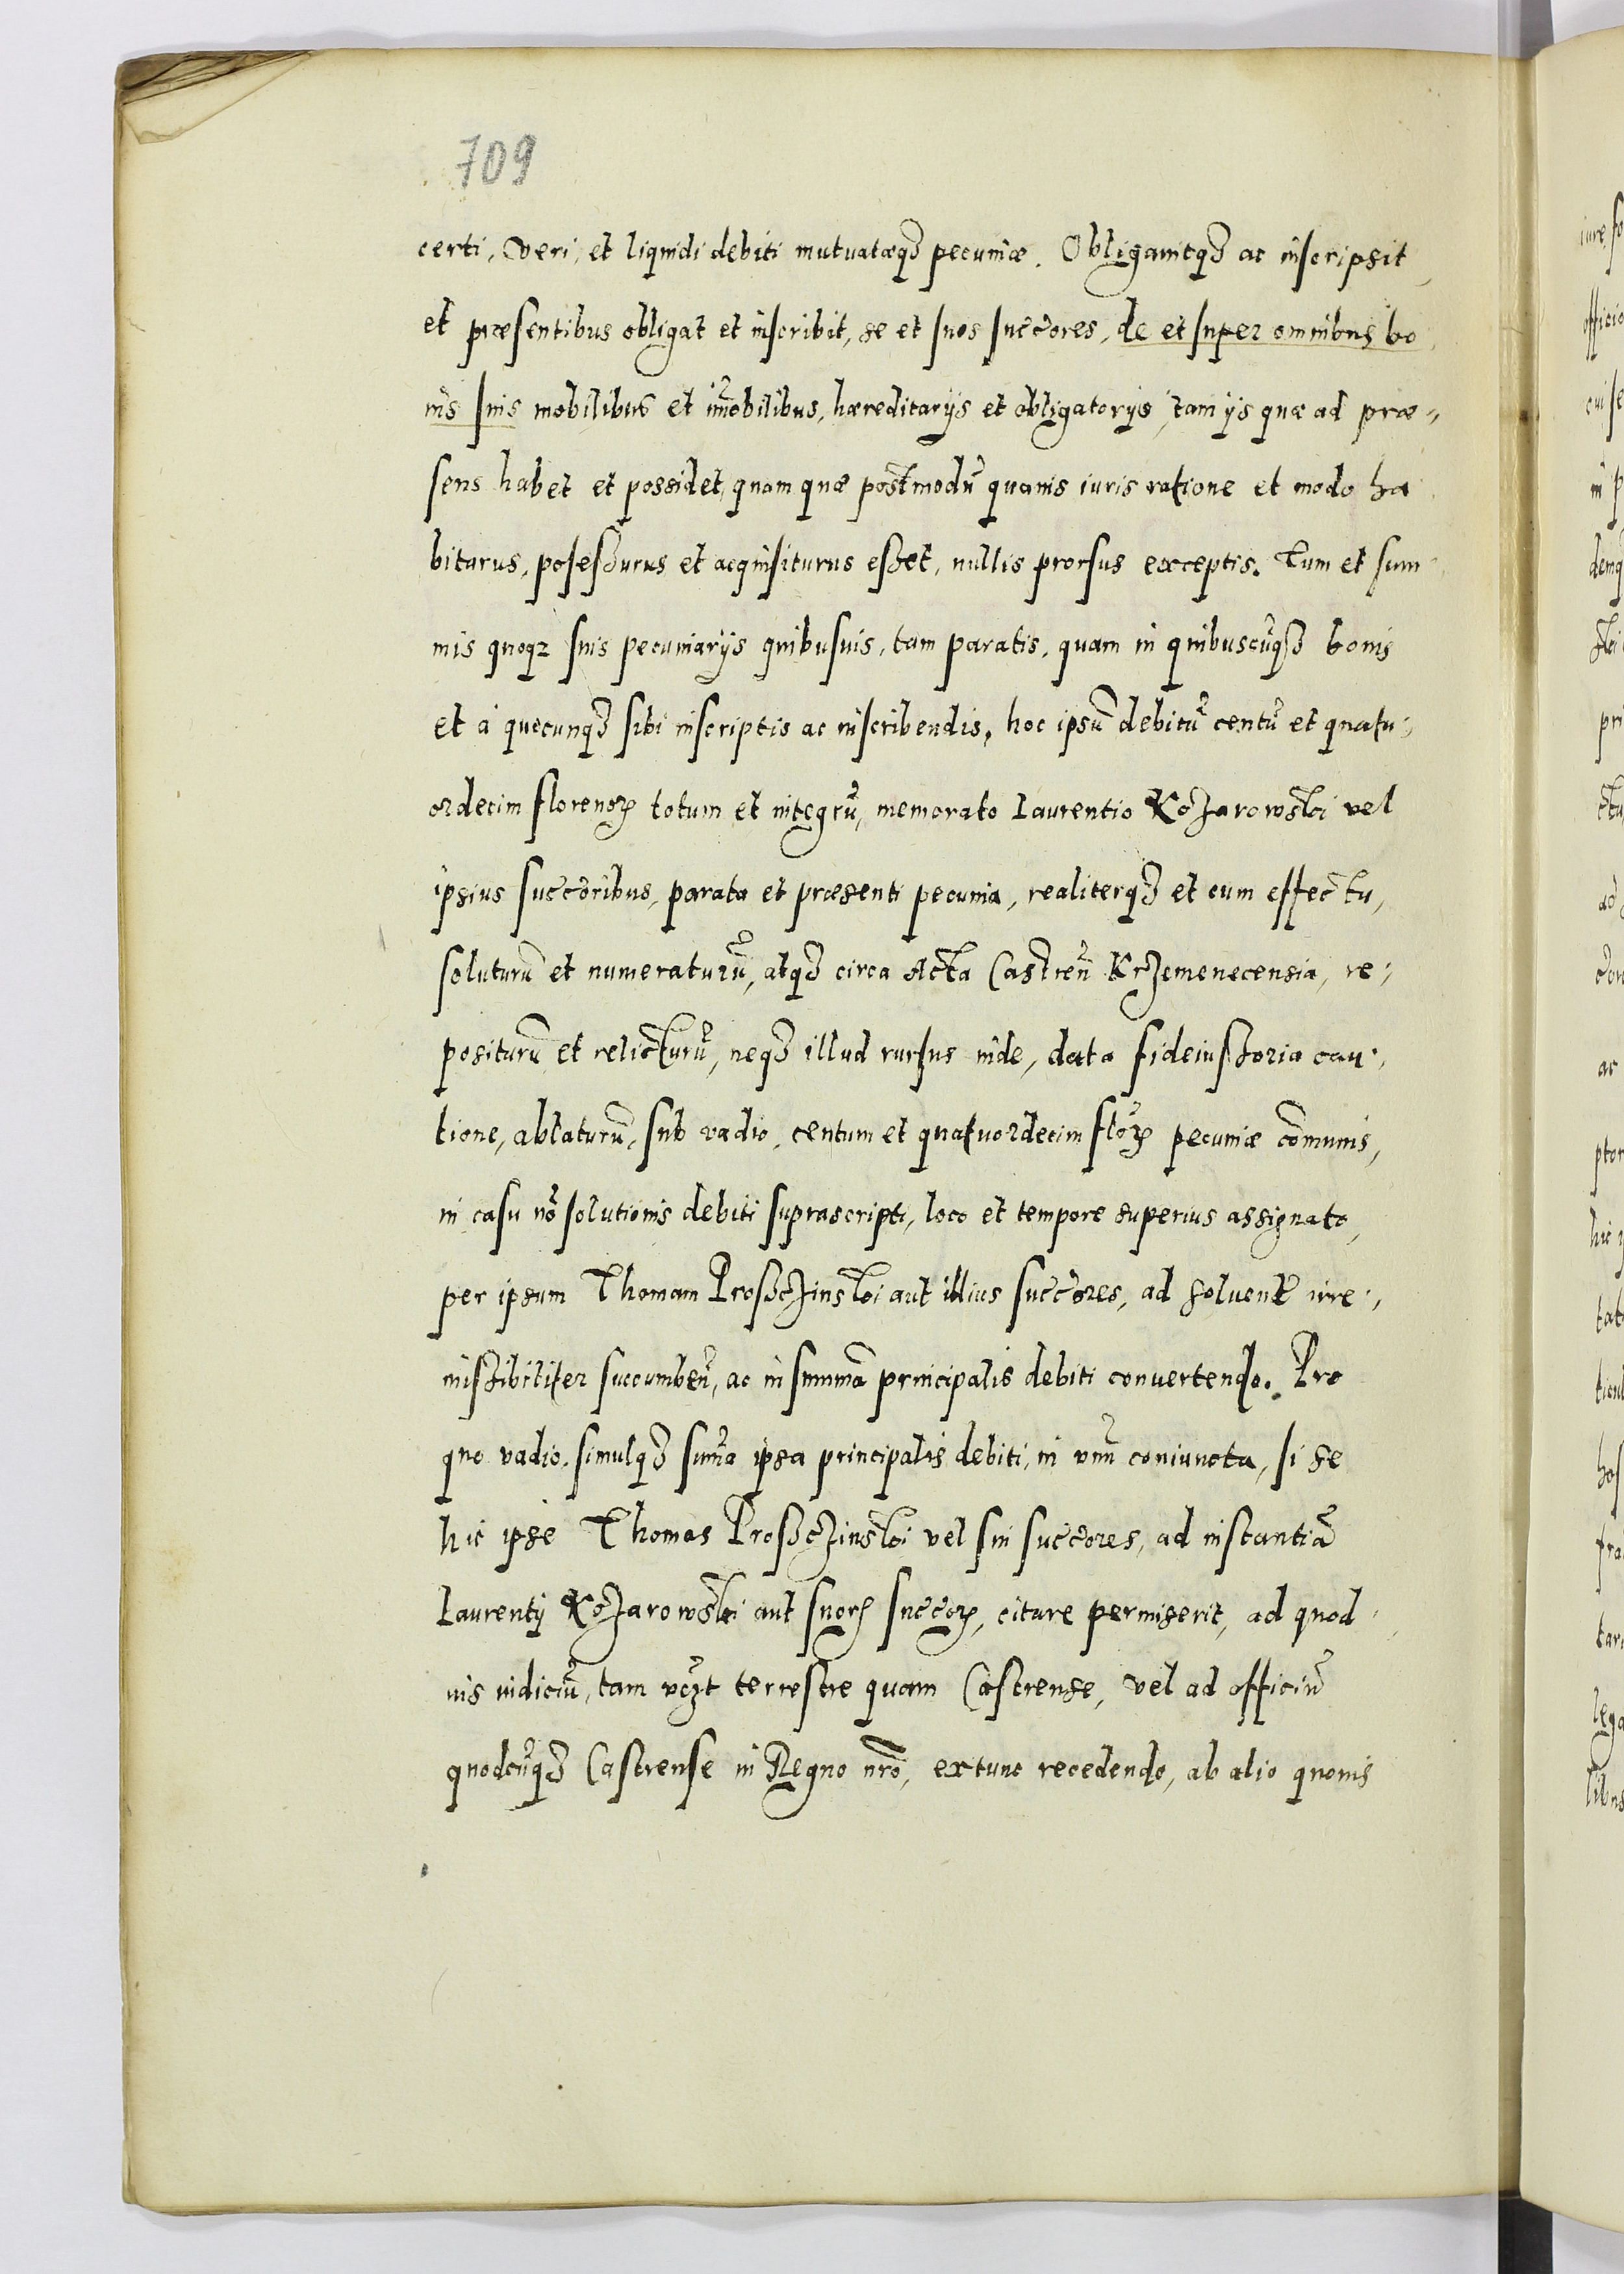 709
certi, veri, et liquidi debiti mutuatæq₃ pecuniæ. Obligauitq₃ ac inscripsit
et præsentibus obligat et inscribit, se et suos succores, de et super omnibus bo
nis suis mobilibus et im̃obilibus, hæreditarijs et obligatorijs, tam ijs quæ ad præ-
sens habet et possidet, quam quæ postmodũ quauis iuris ratione et modo ha
biturus, possessurus et acquisiturus esset, nullis prorsus exceptis. Tum et sum
mis quoqz suis pecuniarijs quibusuis, tam paratis, quam in quibuscũq₃ bonis
et à quocunq₃ sibi inscriptis ac inscribendis, hoc ipsũ debitũ centũ et quatu-
ordecim florenoꝝ totum et integrũ, memorato Laurentio Kozarowski vel
ipsius succoribus, parata et præsenti pecunia, realiterq₃ et cum effectu,
soluturũ et numeraturũ, atq₃ circa Acta Castreñ Krzemenecensia, re-
positurũ et relicturũ, neq₃ illud rursus inde, data fideiussoria cau-
tione, ablaturũ, sub vadio, centum et quatuordecim floꝝ pecuniæ cõmunis,
in casu nõ solutionis debiti suprascripti, loco et tempore superius assignato,
per ipsum Thomam Prosczinski aut illius succores, ad soluend irre-
missibiliter succumbeñ, ac in summã principalis debiti conuertendo. Pro
quo vadio, simulq₃ sum̃a ipsa principalis debiti, in vnũ coniuncta, si se
hic ipse Thomas Prosczinski vel sui succores, ad instantiã
Laurentij Kozarowski aut suoꝝ succoꝝ, citare permiserit, ad quod
uis iudiciũ, tam vczt terrestre quam Castrense, vel ad officiũ
quodcũq₃ Castrense in Regno nrõ, extunc recedendo, ab alio quouis